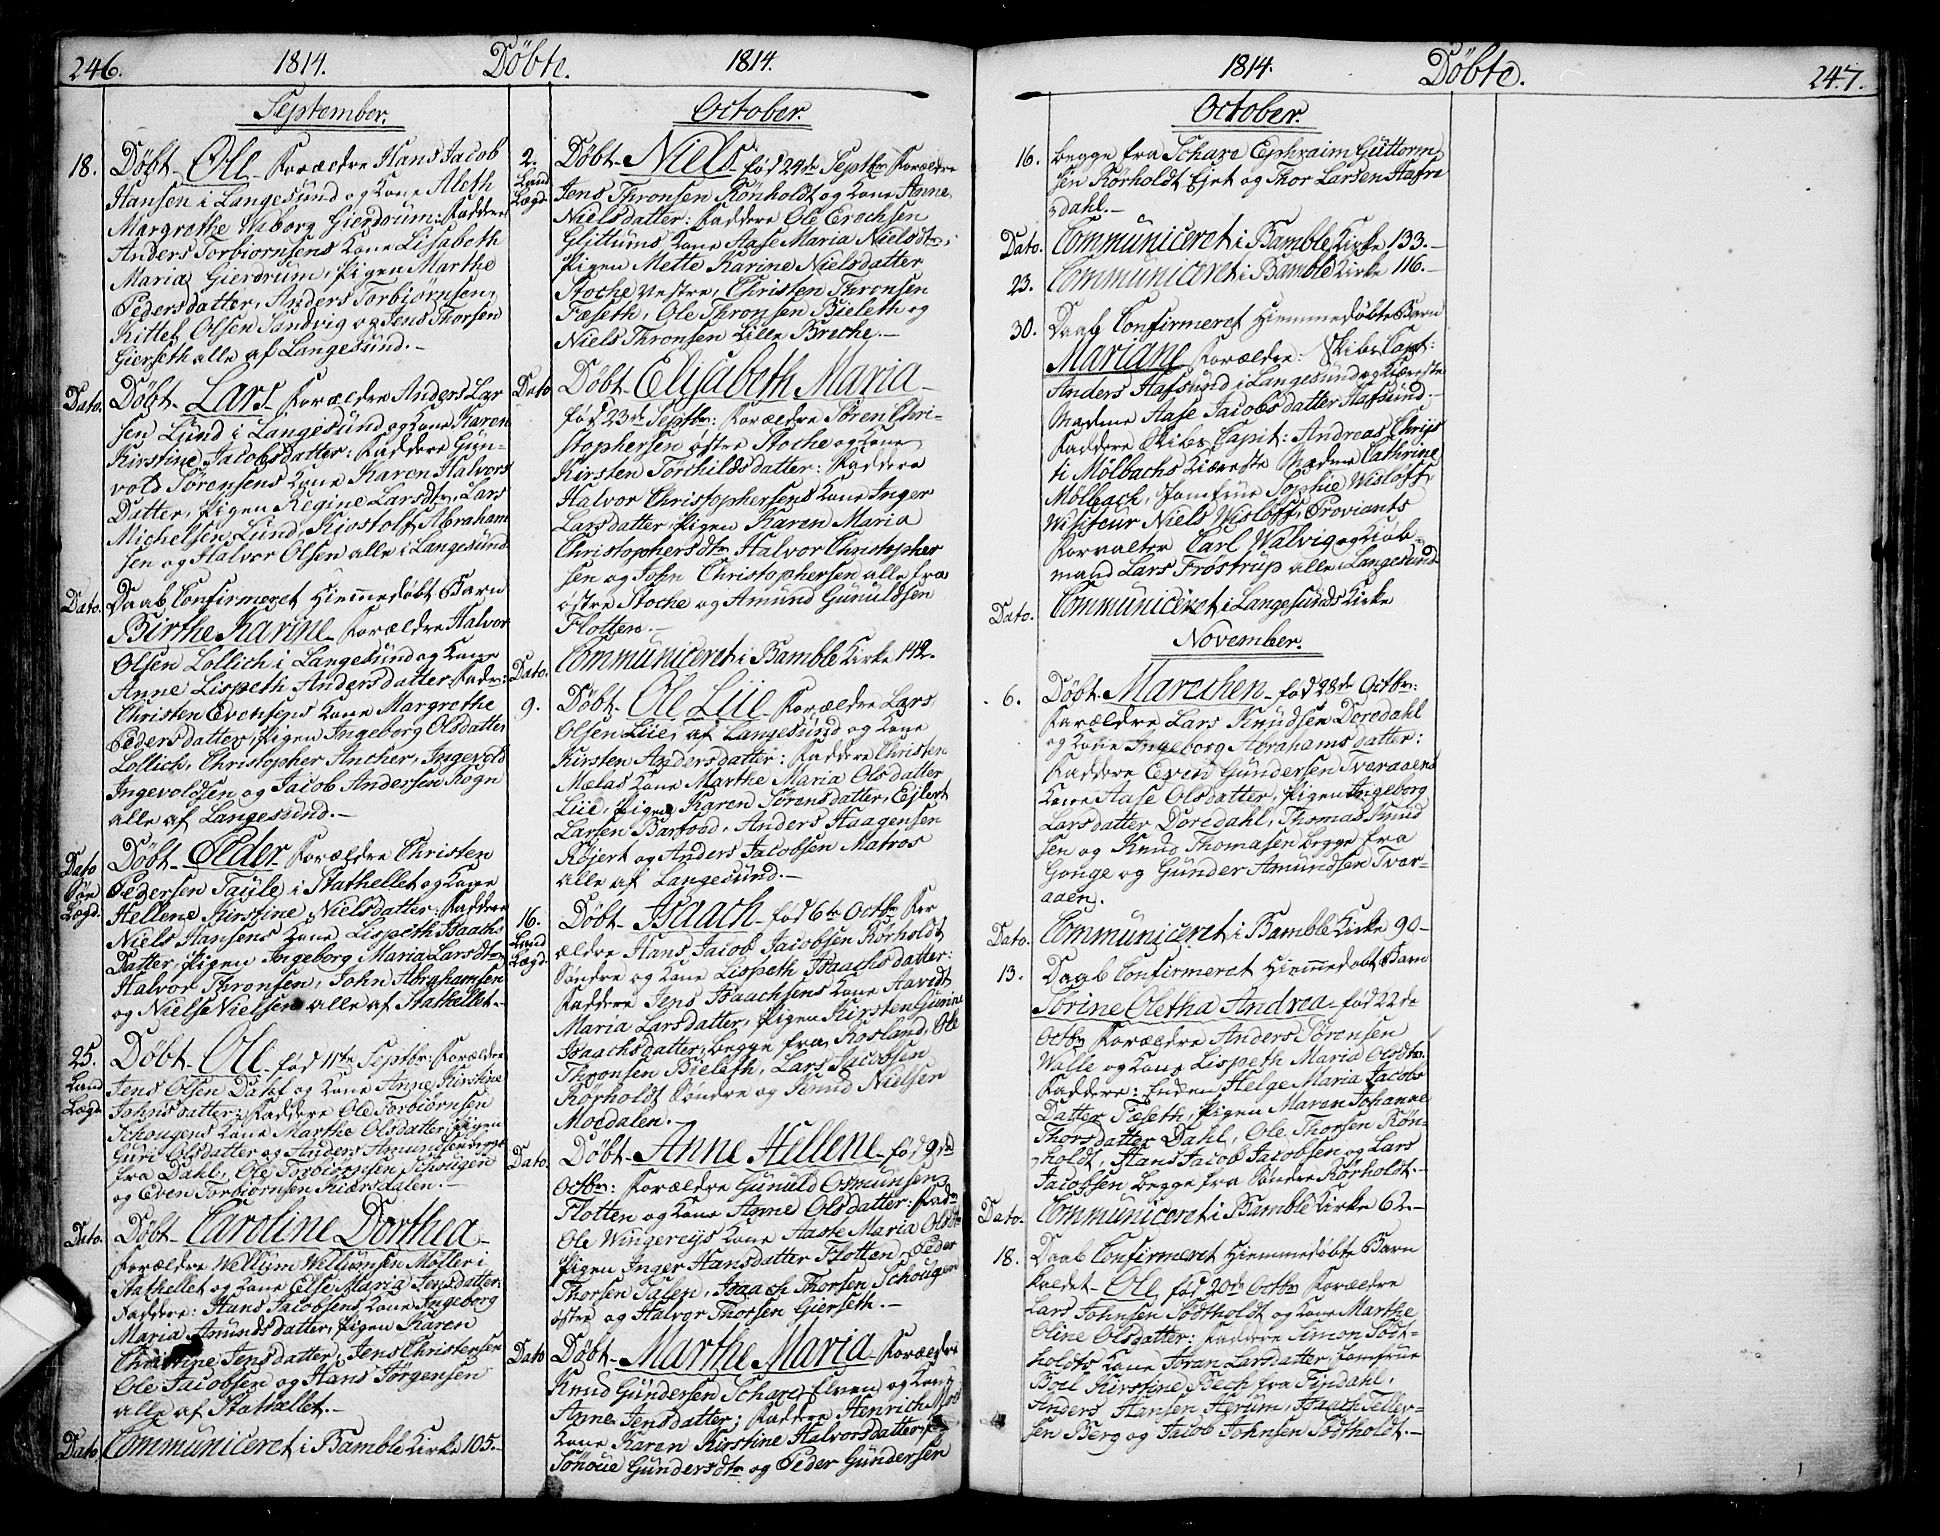 246. 1814. Döbte. 1814.
September.
18. Døbt Ole Forældre Hans Jacob
Hansen i Langesund og Kone Aleth
Margrethe Wiborg Gierdrum: Faddere
Anders Torbiørnsens Kone Lisabeth
Maria Gierdrum, Pigen Marthe
Pedersdatter, Anders Torbiørnsen,
Kittel Olsen Sandvig og Jens Thorsen
Gierseth alle af Langesund.
Dato. Døbt Lars Forældre Anders Lar
sen Lund i Langesund og Kone Karen
Kirstine Jacobsdatter: Faddere Gun-
vold Sørensens Kone Karen Halvors
Datter, Pigen Regine Larsdtr, Lars
Michelsen Lund, Kiostolf Abraham
sen og Halvor Olsen alle i Langesund
Dato. Daab Confirmeret Hiemmedøbt Barn
Birthe Karine Forældre Halvor
Olsen Lollich i Langesund og Kone
Anne Lispeth Andersdatter Fadr:
Christen Evensens Kone Margrethe
Pedersdatter, Pigen Ingeborg Olsdatter
Lollich, Christopher Ancher, Ingevold
Ingevoldsen og Jacob Andersen Kogn
alle af Langesund.
Dato Sør Lægd. Døbt Peder Forældre Christen
Pedersen Tayle i Stathellet og Kone
Hellene Kirstine Nielsdatter: Faddere
Niels Hansens Kone Lispeth Isaachs
Datter, Pigen Ingeborg Maria Larsdtr
Halvor Thronsen, John Abrahamsen
og Niels Nielsen alle af Stathellet.
25. Land Lægd Døbt Ole fød 11te Septbr: Forældre
Jens Olsen Dahl og Kone Anne Kirstine
Johnsdatter: Faddere Ole Torbiørnsen
Schougens Kone Marthe Olsdatter, Pigen
Guri Olsdatter og Anders Amundsen begge
fra Dahl, Ole Torbiørnsen Schougen
og Even Torbiørnsen Kiærsdalen.
Dato. Døbt Caroline Dorthea
Forældre Wellum Wellumsen Møller i
Stathellet og Kone Else Maria Jensdatter:
Faddere: Hans Jacobsens Kone Ingeborg
Maria Amundsdatter, Pigen Karen
Christine Jensdatter, Jens Christensen
Ole Jacobsen og Hans Jørgensen
alle af Stathellet.
Dato Communiceret i Bamble Kirke 105.
October.
2. Land Lægd. Døbt Niels fød 24de Septbr Forældre
Jens Thronsen Rønholdt og Kone Anne
Nielsdatter: Faddere Ole Erochsen
Glittums Kone Aase Maria Nielsdtr,
Pigen Mette Karine Nielsdatter
Stoche Vestre, Christen Thronsen
Fæseth, Ole Thronsen Bieleth og
Niels Thronsen Lille Breche.
Dato Døbt Elisabeth Maria
fød 23de Septbr: Forældre Søren Chri-
stophersen østre Stoche og Kone
Kirsten Torchildsdatter: Faddere
Halvor Christophersens Kone Inger
Larsdatter, Pigen Karen Maria
Christophersdtr Halvor Christopher
sen og John Christophersen alle fra
østre Stoche og Amund Gunuldsen
Flotten.
Dato. Communiceret i Bamble Kirke 142.
9. Døbt Ole Liie Forældre Lars
Olsen Liie, af Langesund og Kone
Kirsten Andersdatter: Faddere Christen
Mælas Kone Marthe Maria Olsdatter
Liie, Pigen Karen Sørensdatter, Ejlert
Larsen Bartvod, Anders Haagensen
Røjert og Anders Jacobsen Matros
alle af Langesund.
16. Land Lægd Døbt Isaach fød 6te Octbr For
ældre Hans Jacob Jacobsen Rørholdt
Søndre og Kone Lispeth Isaachsdatter:
Faddere Jens Isaachsens Kone Aavidt
Maria Larsdatter, Pigen Kirsten Gurine
Isaachsdatter, begge fra Rosland, Ole
Thronsen Bieleth, Lars Jacobsen
Rørholdt Søndre og Knud Nielsen
Moedalen.
Dato. Døbt Anne Hellene fød 9de
Octbr: Forældre Gunuld Osmunsen
Flotten og Kone Anne Olsdatter: Fadr
Ole Wingereijs Kone Aaste Maria Olsdtr
Pigen Inger Hansdatter Flotten, Peder
Thorsen Tasen, Isaach Thorsen Schougen
østre og Halvor Thorsen Gierseth.
Dato Døbt Marthe Maria Forældre
Knud Gundersen Schare Elven og Kone
Anne Jensdatter: Faddere Henrich Moe
Kone Karen Kirstine Halvorsdatter,
Sønoue Gundersdtr og Peder Gundersen
1814. Döbte. 247.
October.
16. begge fra Schare Ephraim Guttorm
sen Rørholdt Ejet og Thor Larsen Hafre
dahl.
Dato. Communiceret i Bamble Kirke 133.
23. Communiceret i Bamble Kirke 116.
30. Daab Confirmeret Hiemmedøbte Barn
Mariane Forældre: Skibs Capt:
Anders Hafsund i Langesund og Kiæreste
Madme Aase Jacobsdatter Hafsund.
Faddere Skibs Capit: Andreas Chrijs
ti Mølbachs Kiæreste Madme Cathrine
Mølbach, Jomfrue Sophie Wisløff,
Wisiteur Niels Wisløff, Proviants
Forvalter Carl Walvig og Kiøb-
mand Lars Frøstrup alle i Langesund
Dato. Communiceret i Langesunds Kirke
November.
6. Døbt Marechen fød 28de Octbr:
Forældre Lars Knudsen Doredahl
og Kone Ingeborg Abrahamsdatter:
Faddere Eevin Gundersen Tvaraaens
Kone Aase Olsdatter, Pigen Ingeborg
Larsdatter Doredahl, Thomas Knud
sen og Knud Thomasen begge fra
Gonge og Gunder Amundsen Tvar-
aaen.
Dato. Communiceret i Bamble Kirke 90
13. Daab Confirmeret Hiemmedøbt Barn
Torine Oletha Andrea fød 22de
Octbr Forældre Anders Sørensen
Walle og Kone Lispeth Maria Olsdtr.
Faddere: Enken Helge Maria Jacobs
Datter Fæseth, Pigen Maren Johanne
Thorsdatter Dahl, Ole Thorsen Røn-
holdt, Hans Jacob Jacobsen og Lars
Jacobsen begge fra Søndre Rørholdt.
Dato. Communiceret i Bamble Kirke 62.
18. Daab Confirmeret Hiemmedøbte Barn
kaldet Ole fød 20de Octbr Forældre
Lars Johnsen Sødtholdt og Kone Marthe
Oline Olsdatter: Faddere Simon Sødt-
holdts Kone Joran Larsdatter, Jomfrue
Boel Kirstine Bech fra Findahl,
Anders Hansen Herum, Isaach Teller-
sen Berg og Jacob Johnsen Sødtholdt.